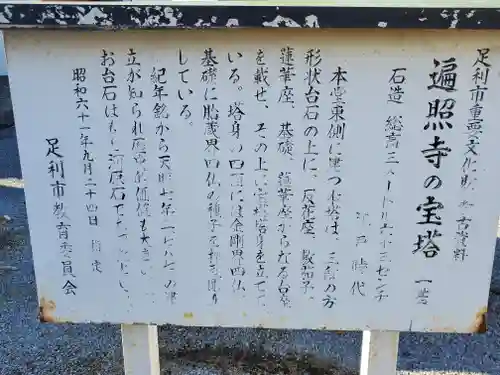 足利市重要文化財 考古資料
遍照寺の宝塔 一基
石造 総高三メートル六十三センチ
江戸時代
本堂東側に建つ宝塔は、三段の方
形状台石の上に、反花座、敷茄子、
蓮華座、基礎、蓮華座からなる台座
を載せ、その上に 塔身を立てて
いる。塔身の四面に金剛界四仏、
基礎に胎蔵界四仏の種子を 
している。
紀年銘から天明七年(一七八七)の
立が知られ歴史的価値も大き
お台石はもと河原石で
昭和六十一年九月二十四日 指定
足利市教育委員会